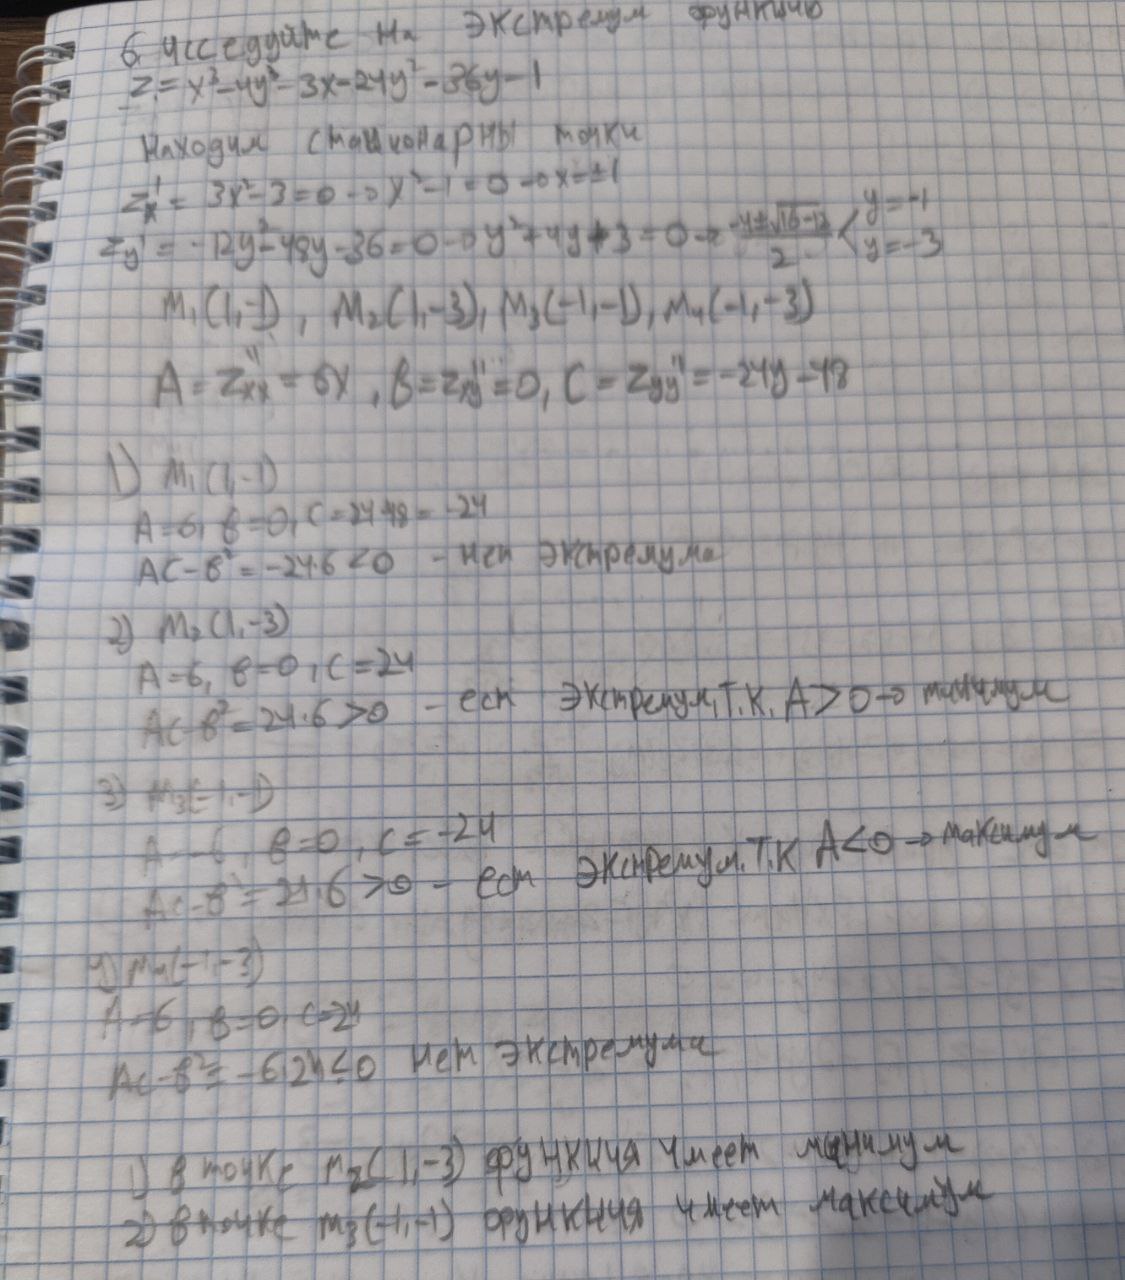 6 Исседуйте на экстремум функцию
z = x³-4y³-3x-24y²-36y-1
Находим стационарны точки
z'x = 3x²-3=0 → x²-1=0 → x=±1
zy' = -12y²-48y-36=0 → y²+4y+3=0 → (-4±√16-12)/2 < y=-1 y=-3
M₁(1,-1), M₂(1,-3), M₃(-1,-1), M₄(-1,-3)
A = z''xx = 6x, B = z''xy = 0, C = z''yy = -24y-48
1) M₁(1,-1)
A=6, B=0, C=24-48=-24
AC-B²=-24·6<0 - нет экстремума
2) M₂(1,-3)
A=6, B=0, C=24
AC-B²=24·6>0 - ест экстремум, Т.К. A>0 → минимум
3) M₃(-1,-1)
A=-6, B=0, C=-24
AC-B²=24·6>0 - ест экстремум. Т.К A<0 → максимум
4) M₄(-1,-3)
A=-6, B=0, C=24
AC-B²=-6·24<0 нет экстремума
1) в точке M₂(1,-3) функция имеет минимум
2) в точке m₃(-1,-1) функция имеет максимум